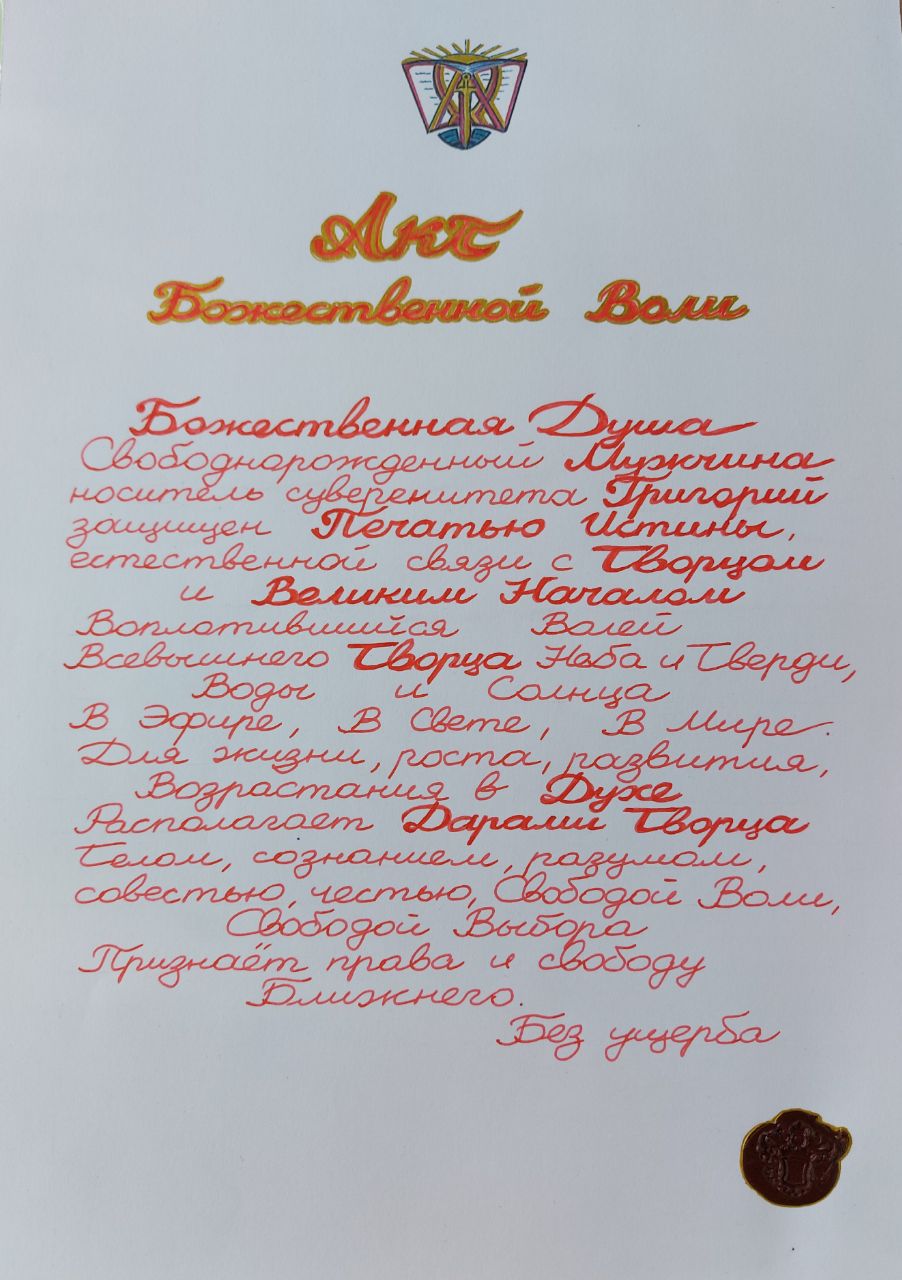 Акт
Божественной Воли
Божественная Душа
Свободнорожденный Мужчина
носитель суверенитета Григорий
защищен Печатью Истины,
естественной связи с Творцом
и Великим Началом
Воплотившийся Волей
Всевышнего Творца Неба и Тверди,
Воды и Солнца
В Эфире, В Свете, В Мире.
Для жизни, роста, развития,
Возрастания в Духе
Располагает Дарами Творца
Телом, сознанием, разумом,
совестью, честью, Свободой Воли,
Свободой Выбора
Признаёт права и свободу
Ближнего.
Без ущерба